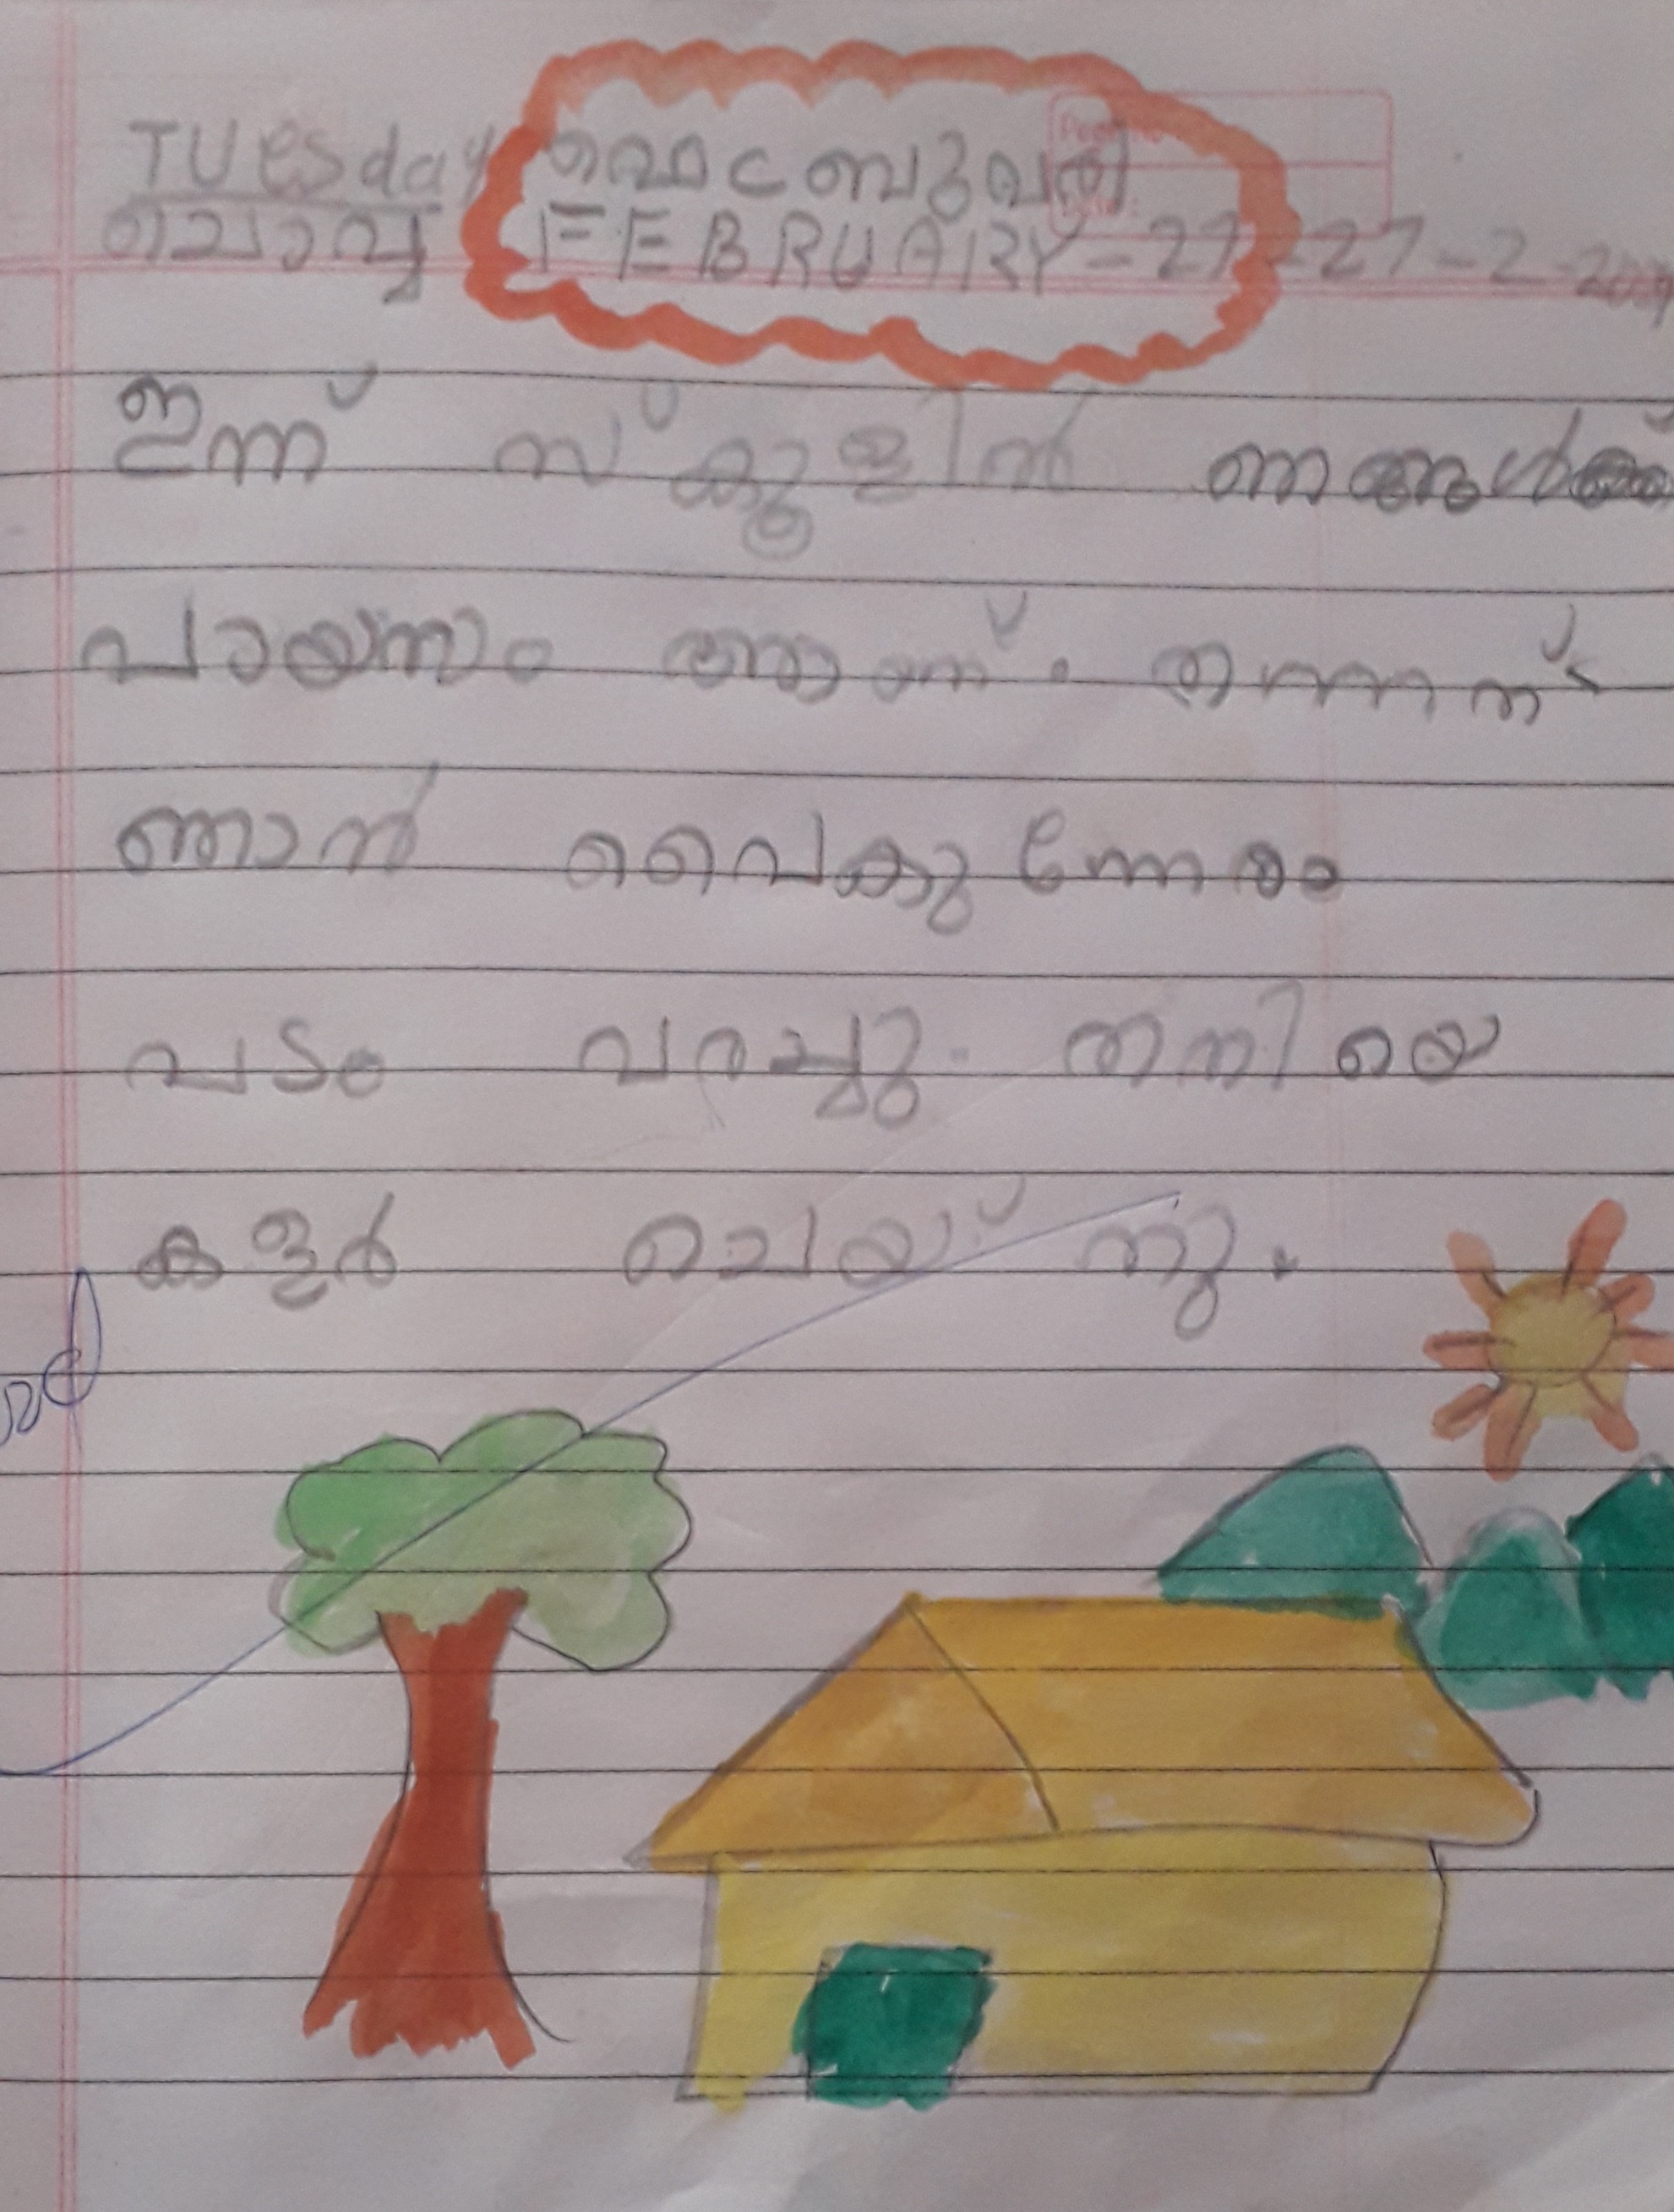 TUesday ഫെംബ്രുവരി
ചൊവ്വ FEBRUARY-27 -27-2-2024
ഇന്ന് സ്കൂളിൽ ഞങ്ങൾക്ക്
പായസം ആണ്. തന്നത്
ഞാൻ വൈകുന്നേരം
പടം വരച്ചു. തനിയെ
കളർ ചെയ്തു.